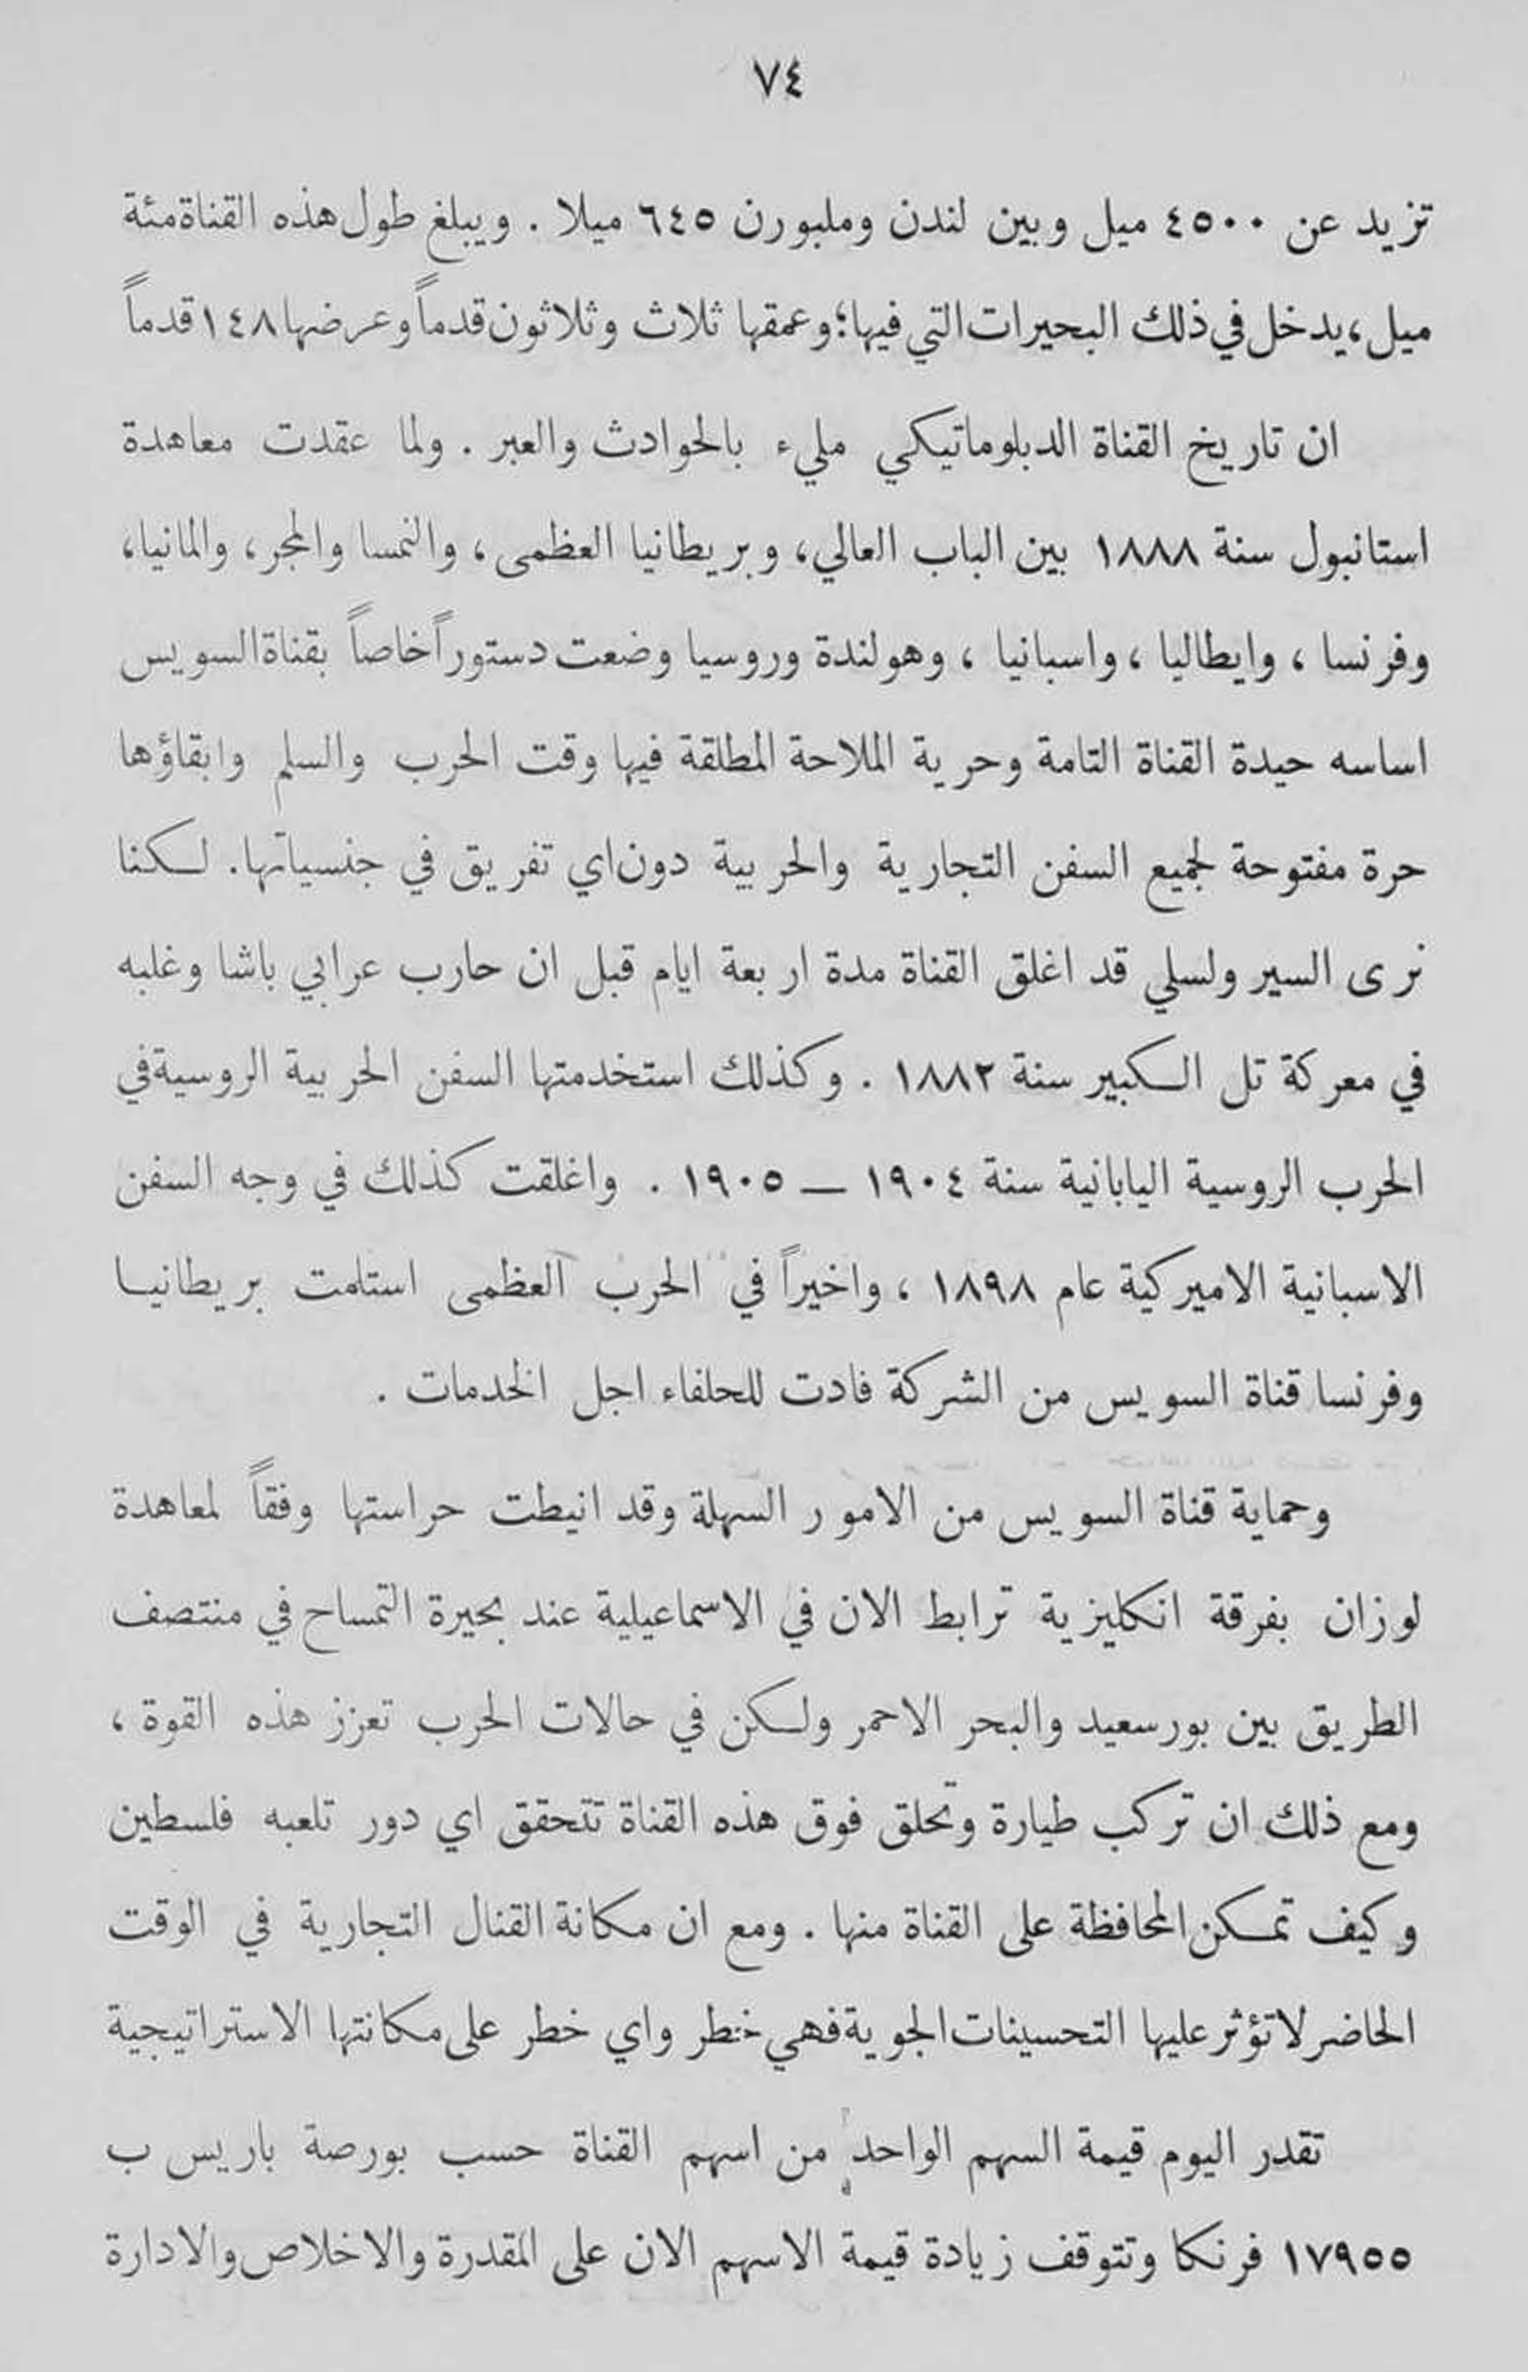 ٧٤
تزيد عن ٤٥٠٠ ميل وبين لندن وملبورن ٦٤٥ ميلا . ويبلغ طول هذه القناة مئة
ميل، يدخل في ذلك البحيرات التي فيها؛ وعمقها ثلاث وثلاثون قدماً وعرضها ١٤٨ قدماً
ان تاريخ القناة الدبلوماتيكي مليء بالحوادث والعبر . ولما عقدت معاهدة
استانبول سنة ١٨٨٨ بين الباب العالي، وبريطانيا العظمى، والنمسا والمجر، والمانيا،
وفرنسا ، وايطاليا ، واسبانيا ، وهولندة وروسيا وضعت دستوراً خاصاً بقناة السويس
اساسه حيدة القناة التامة وحرية الملاحة المطلقة فيها وقت الحرب والسلم وابقاؤها
حرة مفتوحة لجميع السفن التجارية والحربية دون اي تفريق في جنسياتها. لكنا
نرى السير ولسلي قد اغلق القناة مدة اربعة ايام قبل ان حارب عرابي باشا وغلبه
في معركة تل الكبير سنة ١٨٨٢ . وكذلك استخدمتها السفن الحربية الروسية في
الحرب الروسية اليابانية سنة ١٩٠٤ — ١٩٠٥ . واغلقت كذلك في وجه السفن
الاسبانية الاميركية عام ١٨٩٨ ، واخيراً في الحرب العظمى استلمت بريطانيا
وفرنسا قناة السويس من الشركة فادت للحلفاء اجل الخدمات .
وحماية قناة السويس من الامور السهلة وقد انيطت حراستها وفقاً لمعاهدة
لوزان بفرقة انكليزية ترابط الان في الاسماعيلية عند بحيرة التمساح في منتصف
الطريق بين بورسعيد والبحر الاحمر ولكن في حالات الحرب تعزز هذه القوة ،
ومع ذلك ان تركب طيارة وتحلق فوق هذه القناة تتحقق اي دور تلعبه فلسطين
وكيف تمكن المحافظة على القناة منها . ومع ان مكانة القنال التجارية في الوقت
الحاضر لا تؤثر عليها التحسينات الجوية فهي خطر واي خطر على مكانتها الاستراتيجية
تقدر اليوم قيمة السهم الواحد من اسهم القناة حسب بورصة باريس ب
١٧٩٥٥ فرنكا وتتوقف زيادة قيمة الاسهم الان على المقدرة والاخلاص والادارة